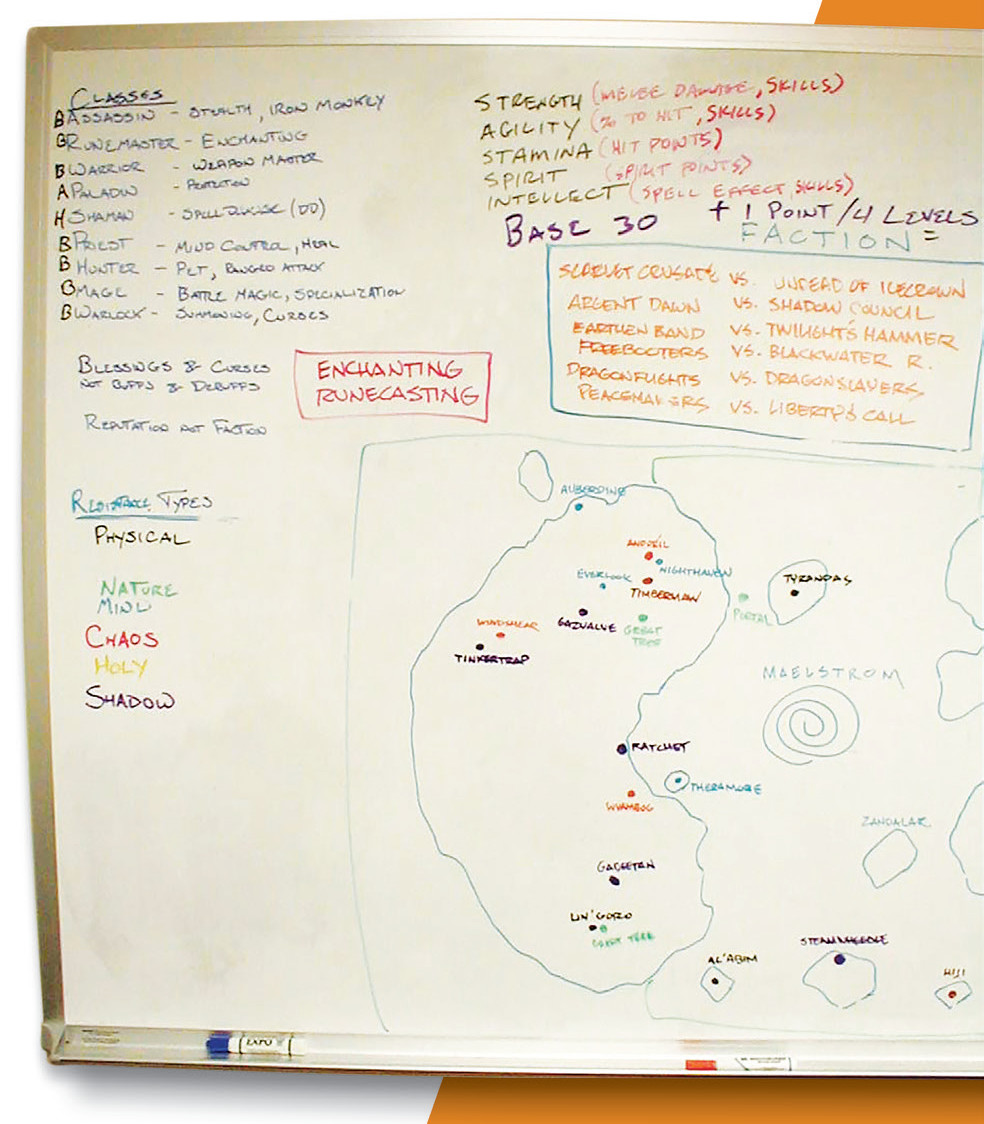 CLASSES
B ASSASSIN - STEALTH, IRON MONKEY
B RUNEMASTER - ENCHANTING
B WARRIOR - WEAPON MASTER
A PALADIN - PROTECTION
H SHAMAN - (DD)
B PRIEST - MIND CONTROL, HEAL
B HUNTER - PET, RANGED ATTACK
B MAGE - BATTLE MAGIC, SPECIALIZATION
B WARLOCK - SUMMONING, CURSES
BLESSINGS & CURSES
NOT BUFFS & DEBUFFS
REPUTATION NOT FACTION
ENCHANTING
RUNECASTING
STRENGTH (MELEE DAMAGE, SKILLS)
AGILITY (% TO HIT, SKILLS)
STAMINA (HIT POINTS)
SPIRIT (SPIRIT POINTS)
INTELLECT (SPELL EFFECT, SKILLS)
BASE 30 + 1 POINT/4 LEVELS
FACTION =
SCARLET CRUSADE VS. UNDEAD OF ICECROWN
ARGENT DAWN VS. SHADOW COUNCIL
EARTHEN BAND VS. TWILIGHT'S HAMMER
FREEBOOTERS VS. BLACKWATER R.
DRAGONFLIGHTS VS. DRAGONSLAYERS
PEACEMAKERS VS. LIBERTY'S CALL
RESISTANCE TYPES
PHYSICAL
NATURE
MIND
CHAOS
HOLY
SHADOW
AUBERDINE
NIGHTHAVEN
EVERLOOK
TIMBERMAW
GREAT TREE
WINDSHEAR
TINKERTRAP
PORTAL
TYRANDAS
MAELSTROM
RATCHET
THERAMORE
ZANDALAR
UN'GORO
AL'ABIM
STEAMWHEEDLE
HIJI
EXPO